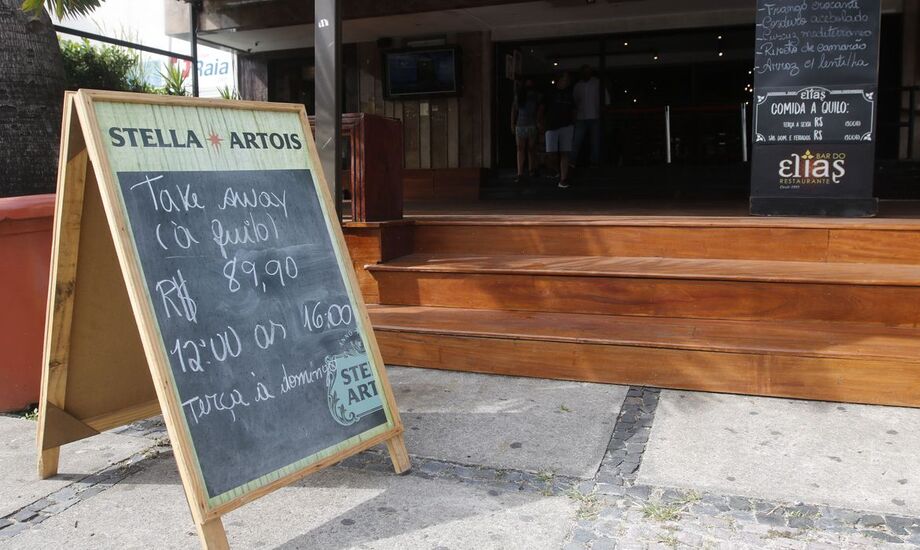 STELLA ARTOIS
Take away
(à quilo)
R$ 89,90
12:00 as 16:00
Terça à domingo
STE
ART
Raia
- Frango crocante
- Cordeiro acebolado
- Cuscuz mediterrâneo
- Risoto de camarão
- Arroz c/ lentilha
elías
COMIDA A QUILO:
TERÇA A SEXTA R$
SÁB DOM. E FERIADOS R$
BAR DO
elías
RESTAURANTE